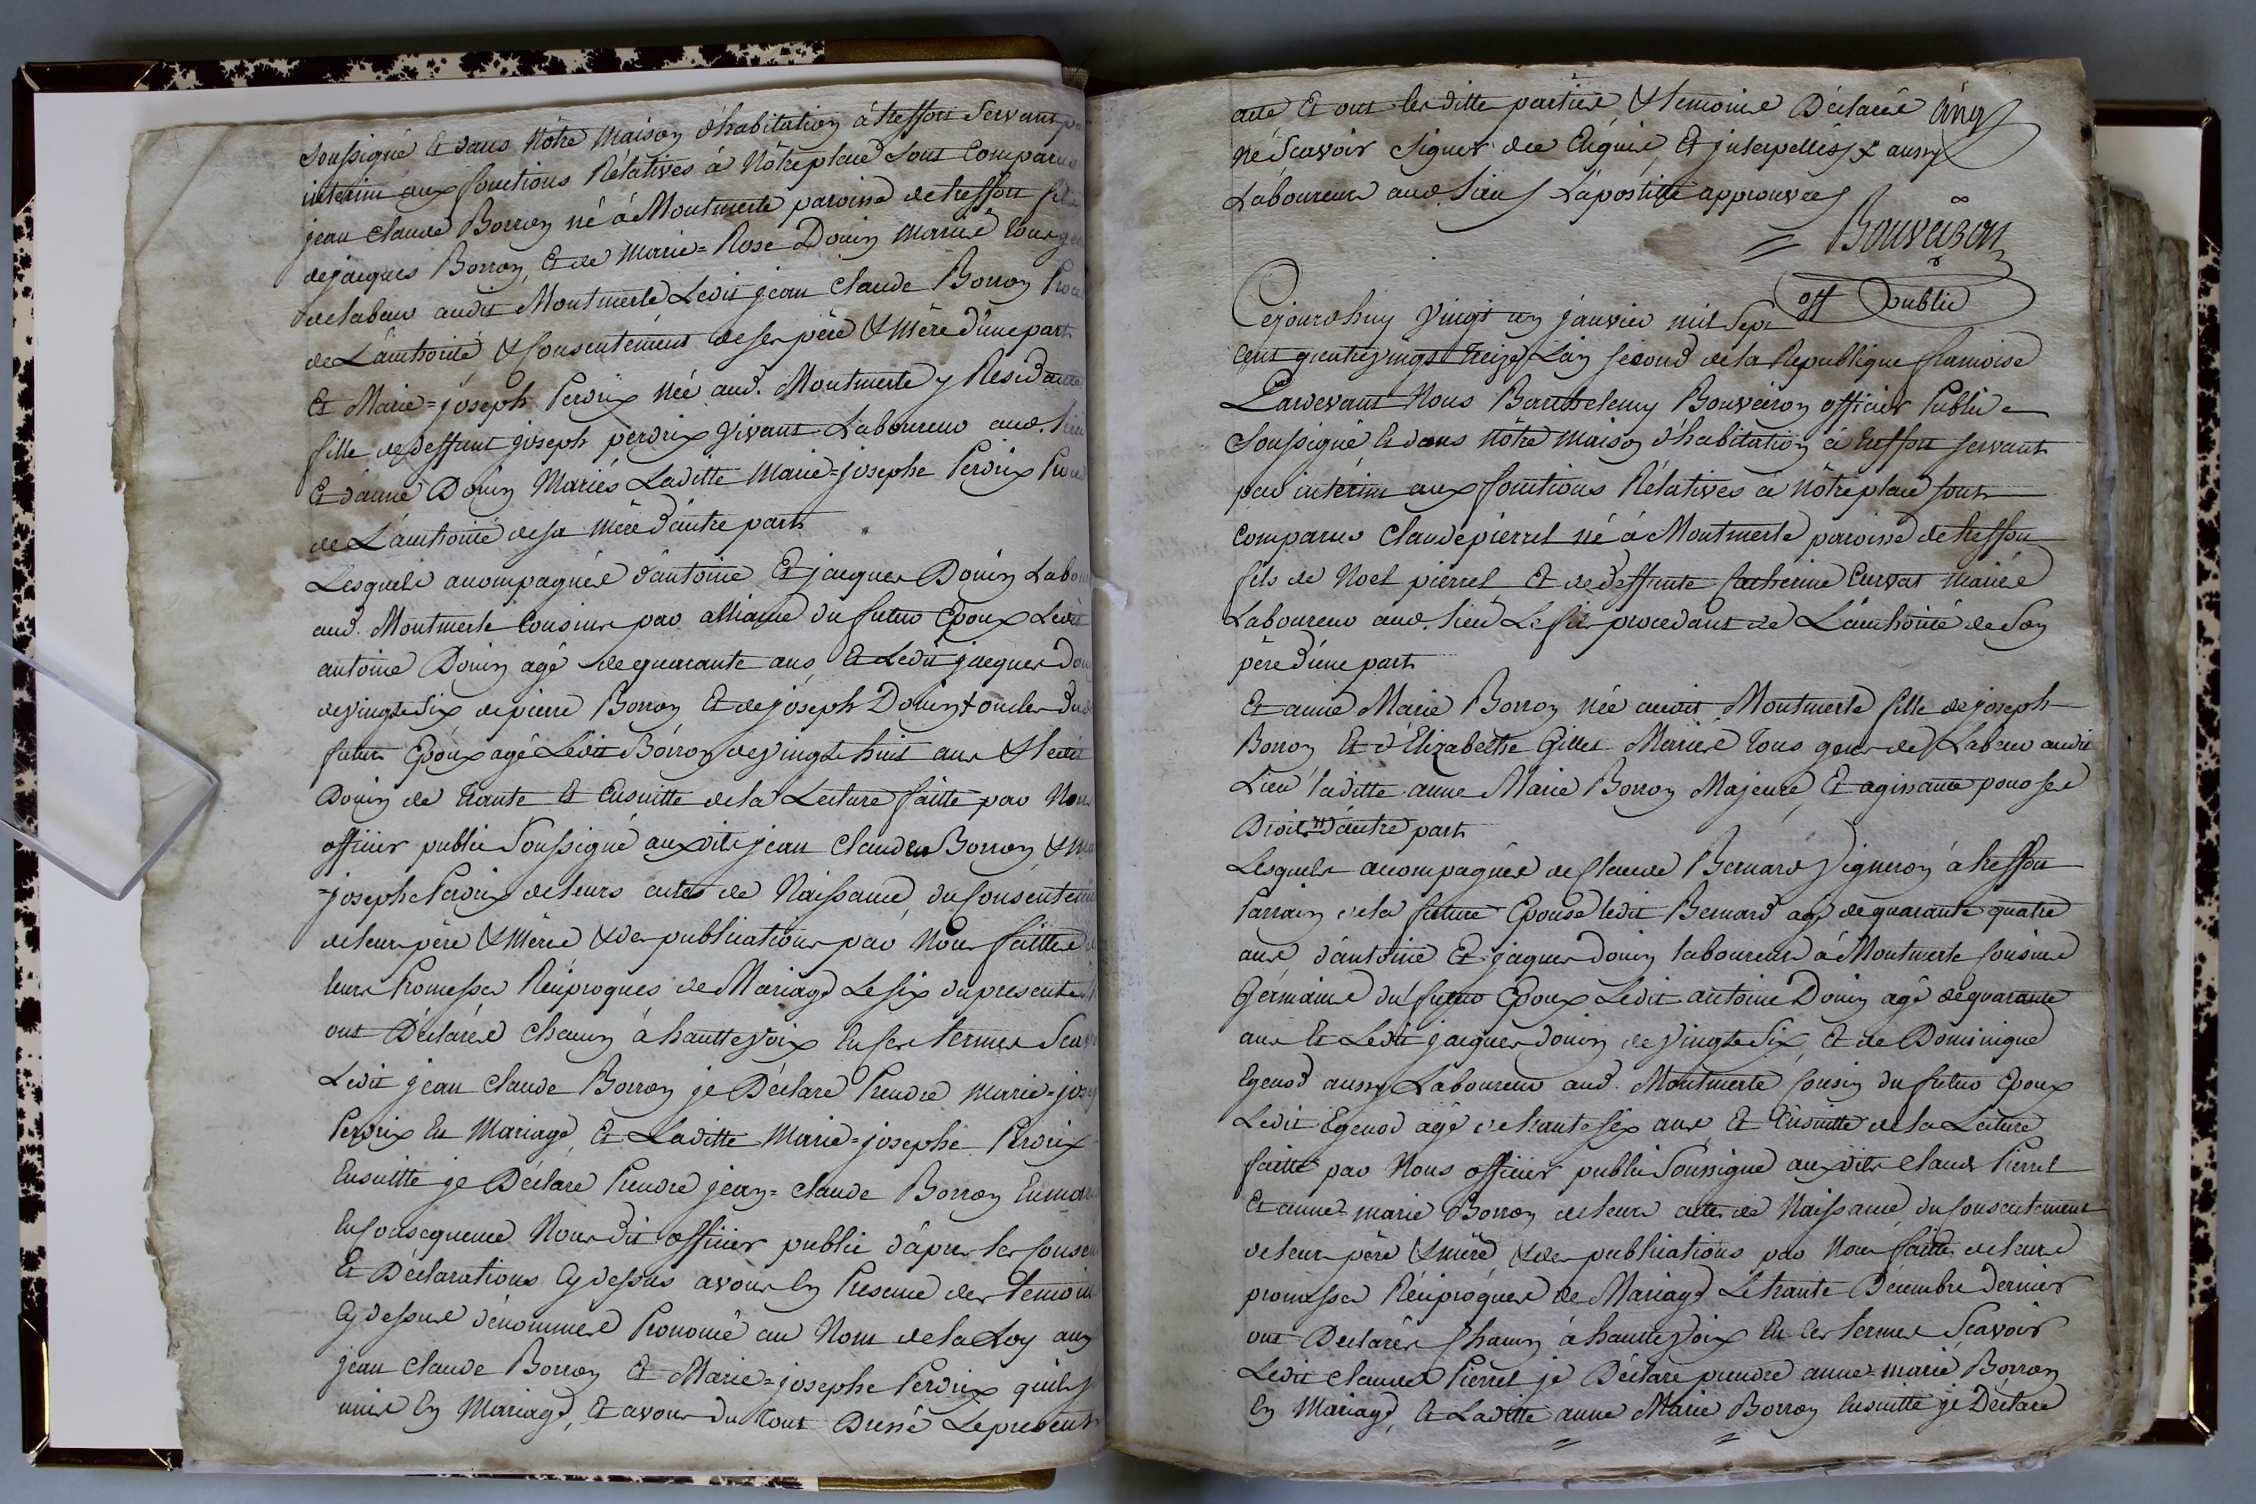 soussigné Et dans Nôtre Maison d'habitation á treffort Servant
interim aux fonctions Rélatives á Nôtre place sont Comparus
jean claude Borron né á Montmerle paroisse de treffort fils
de jacques Borron, Et de Marie=Rose Douin mariés tous gens
de labeur audit Montmerle Ledit jean Claude Borron
de L'authorité & Consentement de ses père & Mère d'une part
Et Marie=joseph Perdrix Née aud. Montmerle y Residante
fille de deffunt joseph perdrix vivant Laboureur aud. lieu
Et d'anne Douin Mariés Laditte Marie=josephe Perdrix
de L'authorité de sa Mère d'autre part
Lesquels acompagnés d'antoine Et jacques Douin
aud. Montmerle Cousins par alliance du futur Epoux Ledit
antoine Douin agé de quarante ans, Et Ledit jacques
de vingt Six de pierre Borron Et de joseph Douin + oncles du
futur Epoux agé Ledit Borron de vingt huit ans & Ledit
Douin de trante Et Ensuitte de la Lecture faitte par Nous
officier public Soussigné auxdits jean Claude Borron &
=josephe Perdrix de leurs actes de Naissance, du Consentement
de leurs père & Mère & des publications par Nous faittes
leurs Promesses Réciproques de Mariage Le six du present
ont Déclarés chacun á hautte voix En ces termes
Ledit jean Claude Borron je Déclare Prendre Marie=
Perdrix En Mariage, Et Laditte Marie=josephe Perdrix
Ensuitte je Déclare Prendre jean=claude Borron
En Consequence Nous dit officier public d'après les
Et Déclarations Cy dessus avons En Presence des temoins
Cy dessus dénommés Prononcé au Nom de la Loy
jean Claude Borron Et Marie=josephe Perdrix qu'ils
unis En Mariage, Et avons du tout Dressé Le present
acte Et ont lesditte parties & temoins Déclarés
né Scavoir signer de Enquis Et interpellés + aussy
Laboureur aud. Lieu L'apostille approuvée
Bouveiron
off public
Cejourdhuy vingt un janvier mil Sept
cent quatrevingt treize L'an second de la Republique francoise
Pardevant Nous Barthelemy Bouveiron officier Public
Soussigné Et dans Nôtre Maison d'habitation á treffort servant
par interim aux fonctions Rélatives a Nôtre place sont
Comparus Claude pierrel né á Montmerle paroisse de treffort
fils de Noel pierrel Et de deffunte Catherine Curvat mariés
Laboureur aud. lieu Le fils procedant de L'authorité de Son
père d'une part
Et anne Marie Borron née audit Montmerle fille de joseph
Borron Et d'Elizabethe Gillet Mariés tous gens de Labeur audit
Lieu laditte anne Marie Borron Majeure, Et agissante pour ses
Droits d'autre part
Lesquels acompagnés de Claude Bernard Vigneron á treffort
Parrain de la future Epouse ledit Bernard agé de quarante quatre
ans d'antoine Et jaques Douin laboureurs á Montmerle Cousins
Germains du futur Epoux Ledit antoine Douin agé de quarante
ans Et Ledit jacques douin de vingt Six, Et de Dominique
Egenod aussy Laboureur aud. Montmerle Cousin du futur Epoux
Ledit Egenod agé de trante six ans, Et Ensuitte de la Lecture
faitte par Nous officier public Soussigné auxdits Claude Pierrel
Et anne=marie Borron de leurs actes de Naissance, du Consentement
de leur père & mère, & des publications par Nous faittes de leurs
promesses Réciproques de Mariage Le trante Décembre Dernier
ont Déclarés Chacun á hautte voix En ces termes Scavoir
Ledit claude Pierrel je Déclare prendre anne=marie Borron
En Mariage, Et Laditte anne Marie Borron Ensuitte je Déclare